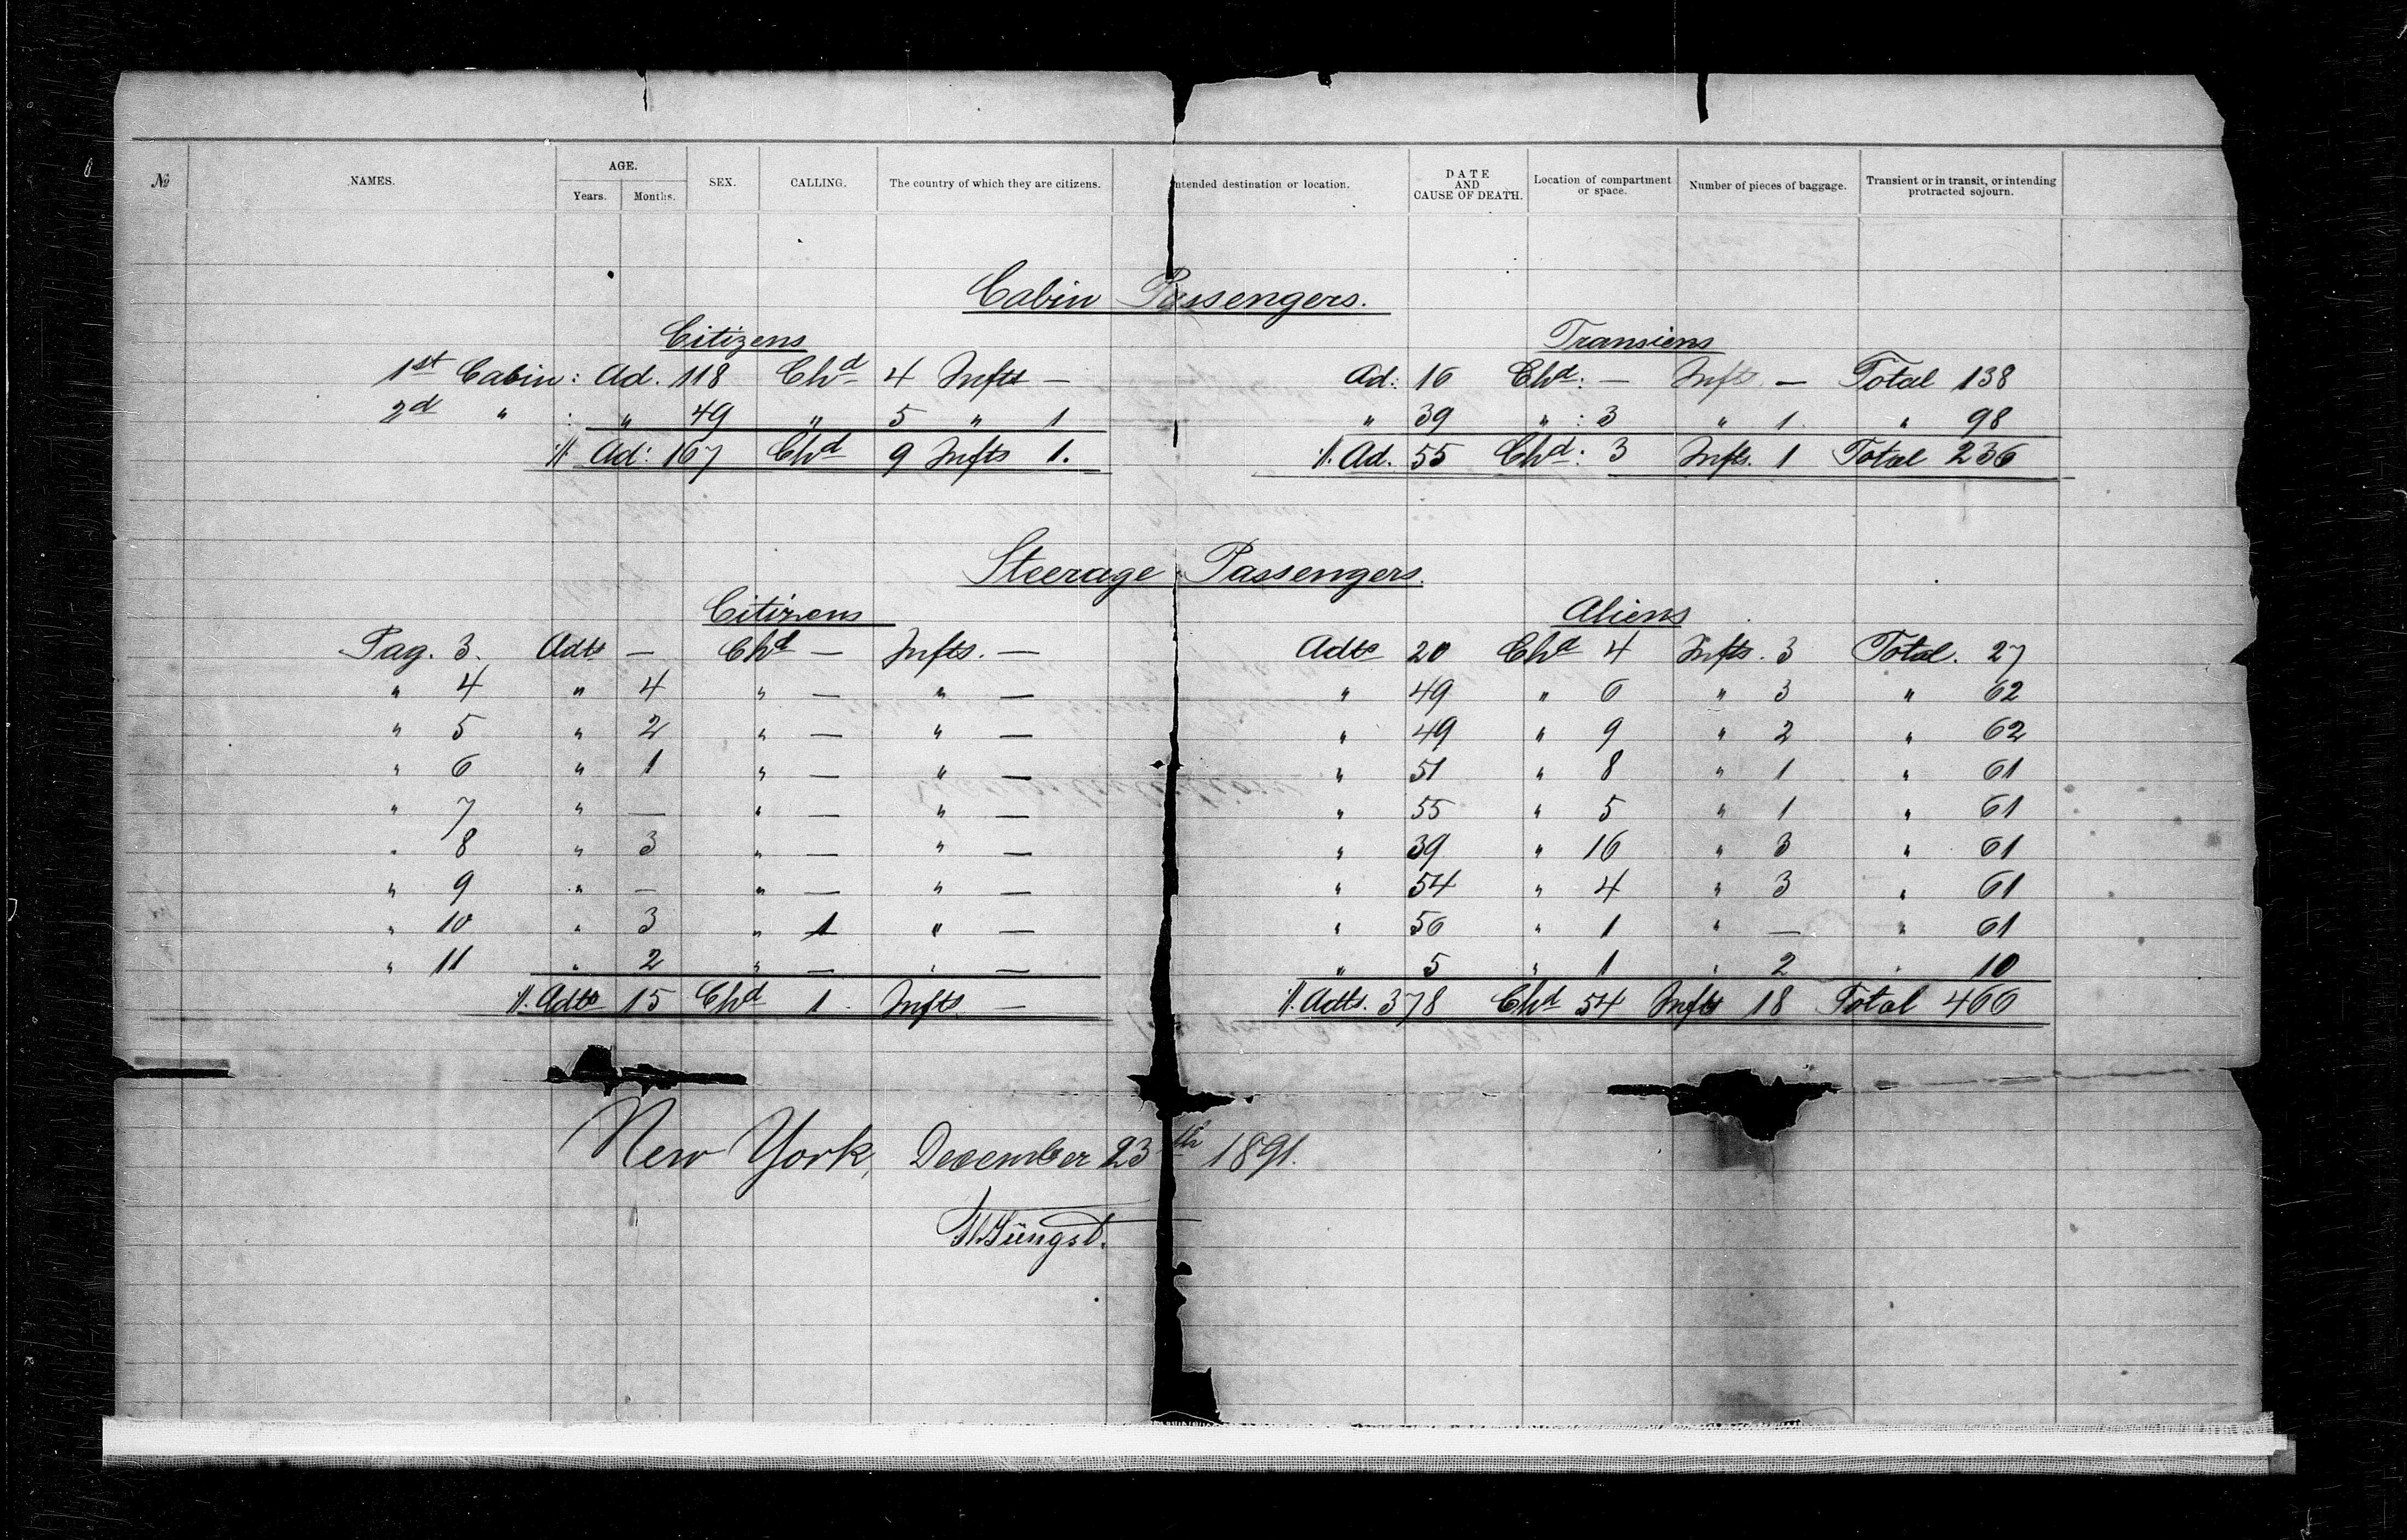 № NAMES. AGE. Years. Months. SEX. CALLING. The country of which they are citizens. Intended destination or location. DATE AND CAUSE OF DEATH. Location of compartment or space. Number of pieces of baggage. Transient or in transit, or intending protracted sojourn.
Cabin Passengers.
Citizens Transiens
1st Cabin: Ad. 118 Chd 4 Infts — Ad: 16 Chd: — Infts — Total 138
2d " : " 49 " 5 " 1 " 39 " : 3 " 1 " 98
./. Ad: 167 Chd 9 Infts 1. ./. Ad. 55 Chd: 3 Infts. 1 Total 236
Steerage Passengers.
Citizens Aliens
Pag. 3. Adts — Chd — Infts. — Adts 20 Chd 4 Infts. 3 Total. 27
" 4 " 4 " — " — " 49 " 6 " 3 " 62
" 5 " 2 " — " — " 49 " 9 " 2 " 62
" 6 " 1 " — " — " 51 " 8 " 1 " 61
" 7 " — " — " — " 55 " 5 " 1 " 61
" 8 " 3 " — " — " 39 " 16 " 3 " 61
" 9 " — " — " — " 54 " 4 " 3 " 61
" 10 " 3 " 1 " — " 56 " 1 " — " 61
" 11 " 2 " — " — " 5 " 1 " 2 " 10
./. Adts 15 Chd 1 Infts — ./. Adts. 378 Chd 54 Infts 18 Total 466
New York, December 23th 1891.